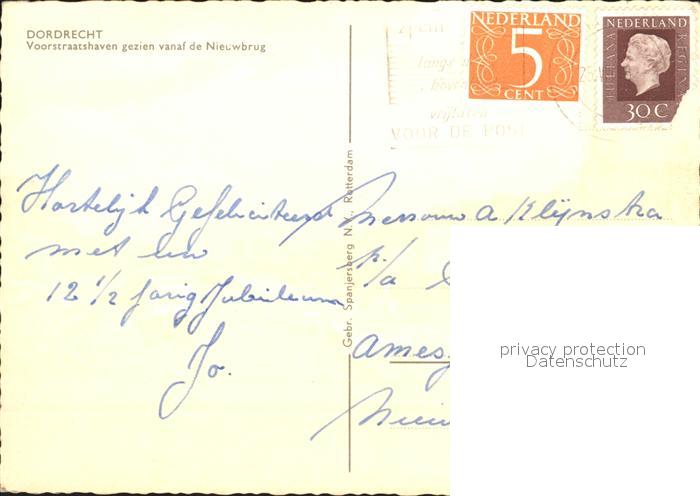 DORDRECHT
Voorstraatshaven gezien vanaf de Nieuwbrug
4 cm
langs
boven
vrijlaten
VOOR DE POST
NEDERLAND
5
CENT
NEDERLAND
JULIANA REGINA
30 C
25
Hartelijk Gefeliciteerd
met uw
12 1/2 jarig Jubileum
Jo.
Gebr. Spanjersberg N.V. Rotterdam
Mevrouw A Klijnstra
p/a
Ames
Nieuw
privacy protection
Datenschutz